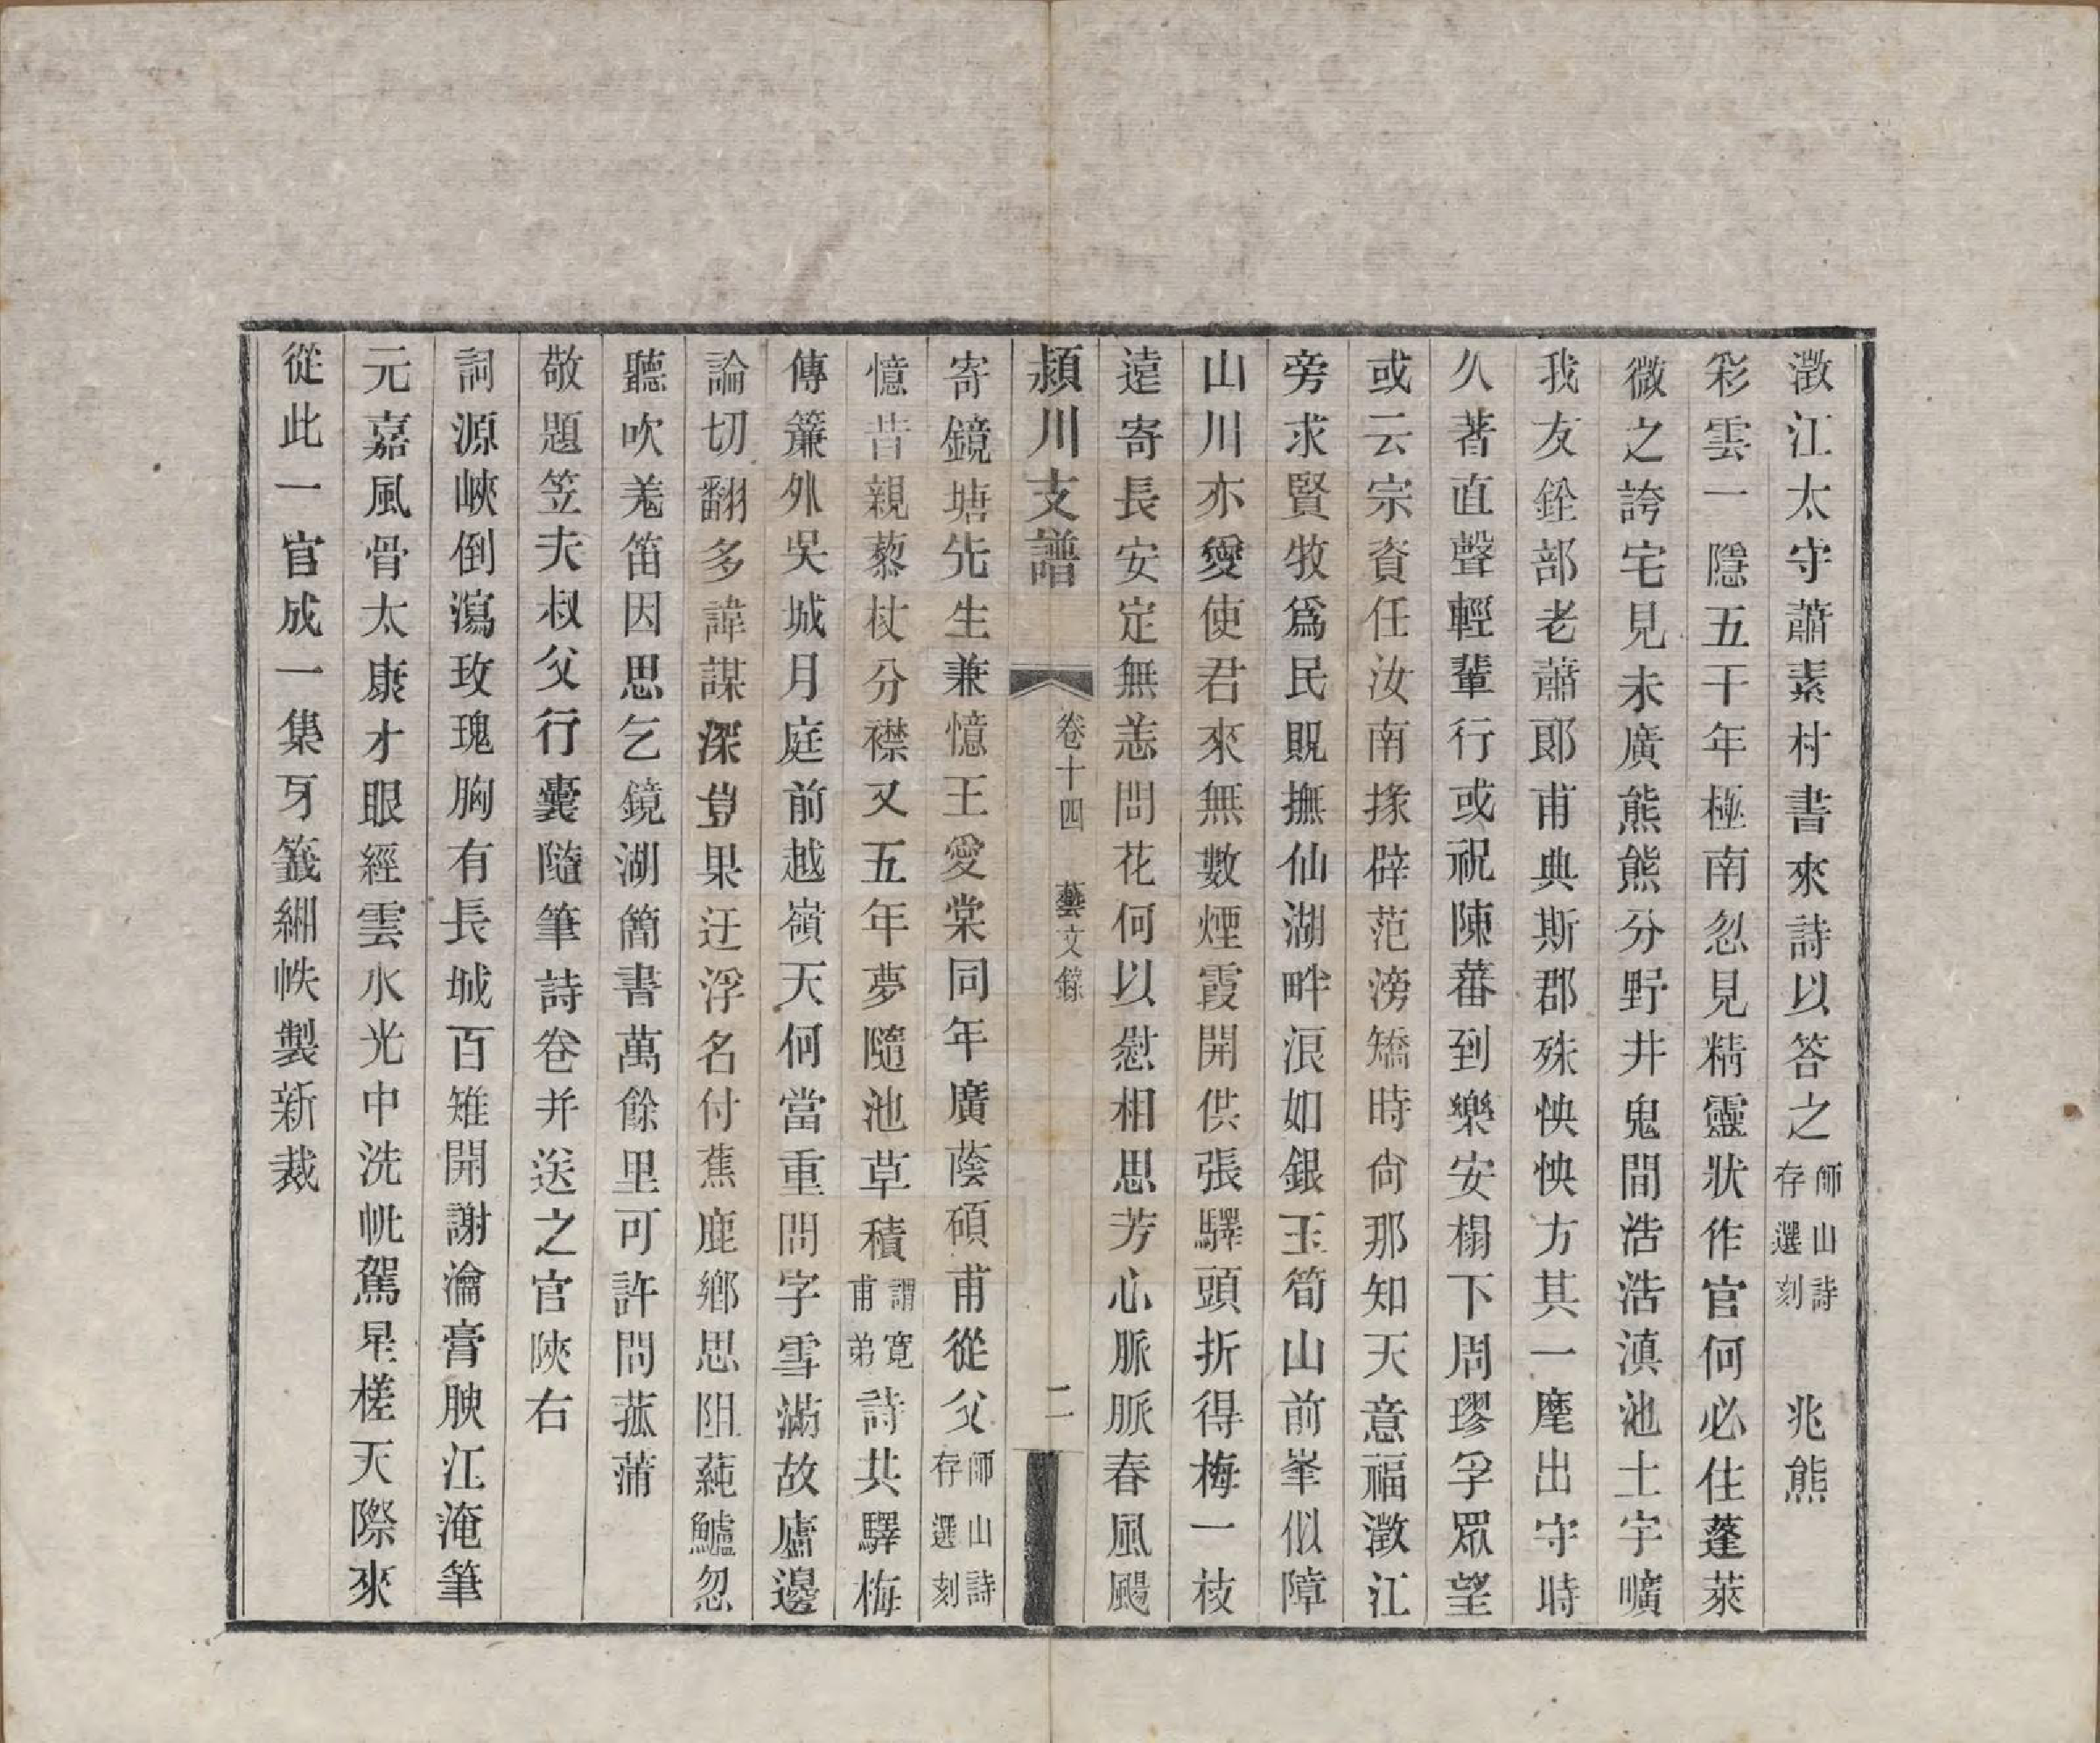 澂江太守蕭素村書來詩以答之師山詩存選刻　兆熊
彩雲一隱五千年極南忽見精靈狀作官何必住蓬萊
微之誇宅見未廣熊熊分野井鬼間浩浩滇池土宇曠
我友銓部老蕭郞甫典斯郡殊怏怏方其一麾出守時
久著直聲輕輩行或祝陳蕃到樂安榻下周璆孚眾望
或云宗資任汝南掾辟范滂矯時尙那知天意福澂江
旁求賢牧爲民貺撫仙湖畔浪如銀玉筍山前峯似障
山川亦愛使君來無數煙霞開供張驛頭折得梅一枝
遠寄長安定無恙問花何以慰相思芳心脈脈春風颺
潁川支譜　卷十四　藝文錄　二
寄鏡塘先生兼憶王愛棠同年廣蔭碩甫從父師山詩存選刻
憶昔親藜杖分襟又五年夢隨池草積謂寬甫弟詩共驛梅
傳簾外吳城月庭前越嶺天何當重問字雪滿故廬邊
論切翻多諱謀深豈果迂浮名付蕉鹿鄉思阻蒓鱸忽
聽吹羗笛因思乞鏡湖簡書萬餘里可許問菰蒲
敬題笠夫叔父行囊隨筆詩卷并送之官陜右
詞源峽倒瀉玫瑰胸有長城百雉開謝瀹膏腴江淹筆
元嘉風骨太康才眼經雲水光中洗帆駕星槎天際來
從此一官成一集牙籤緗帙製新裁